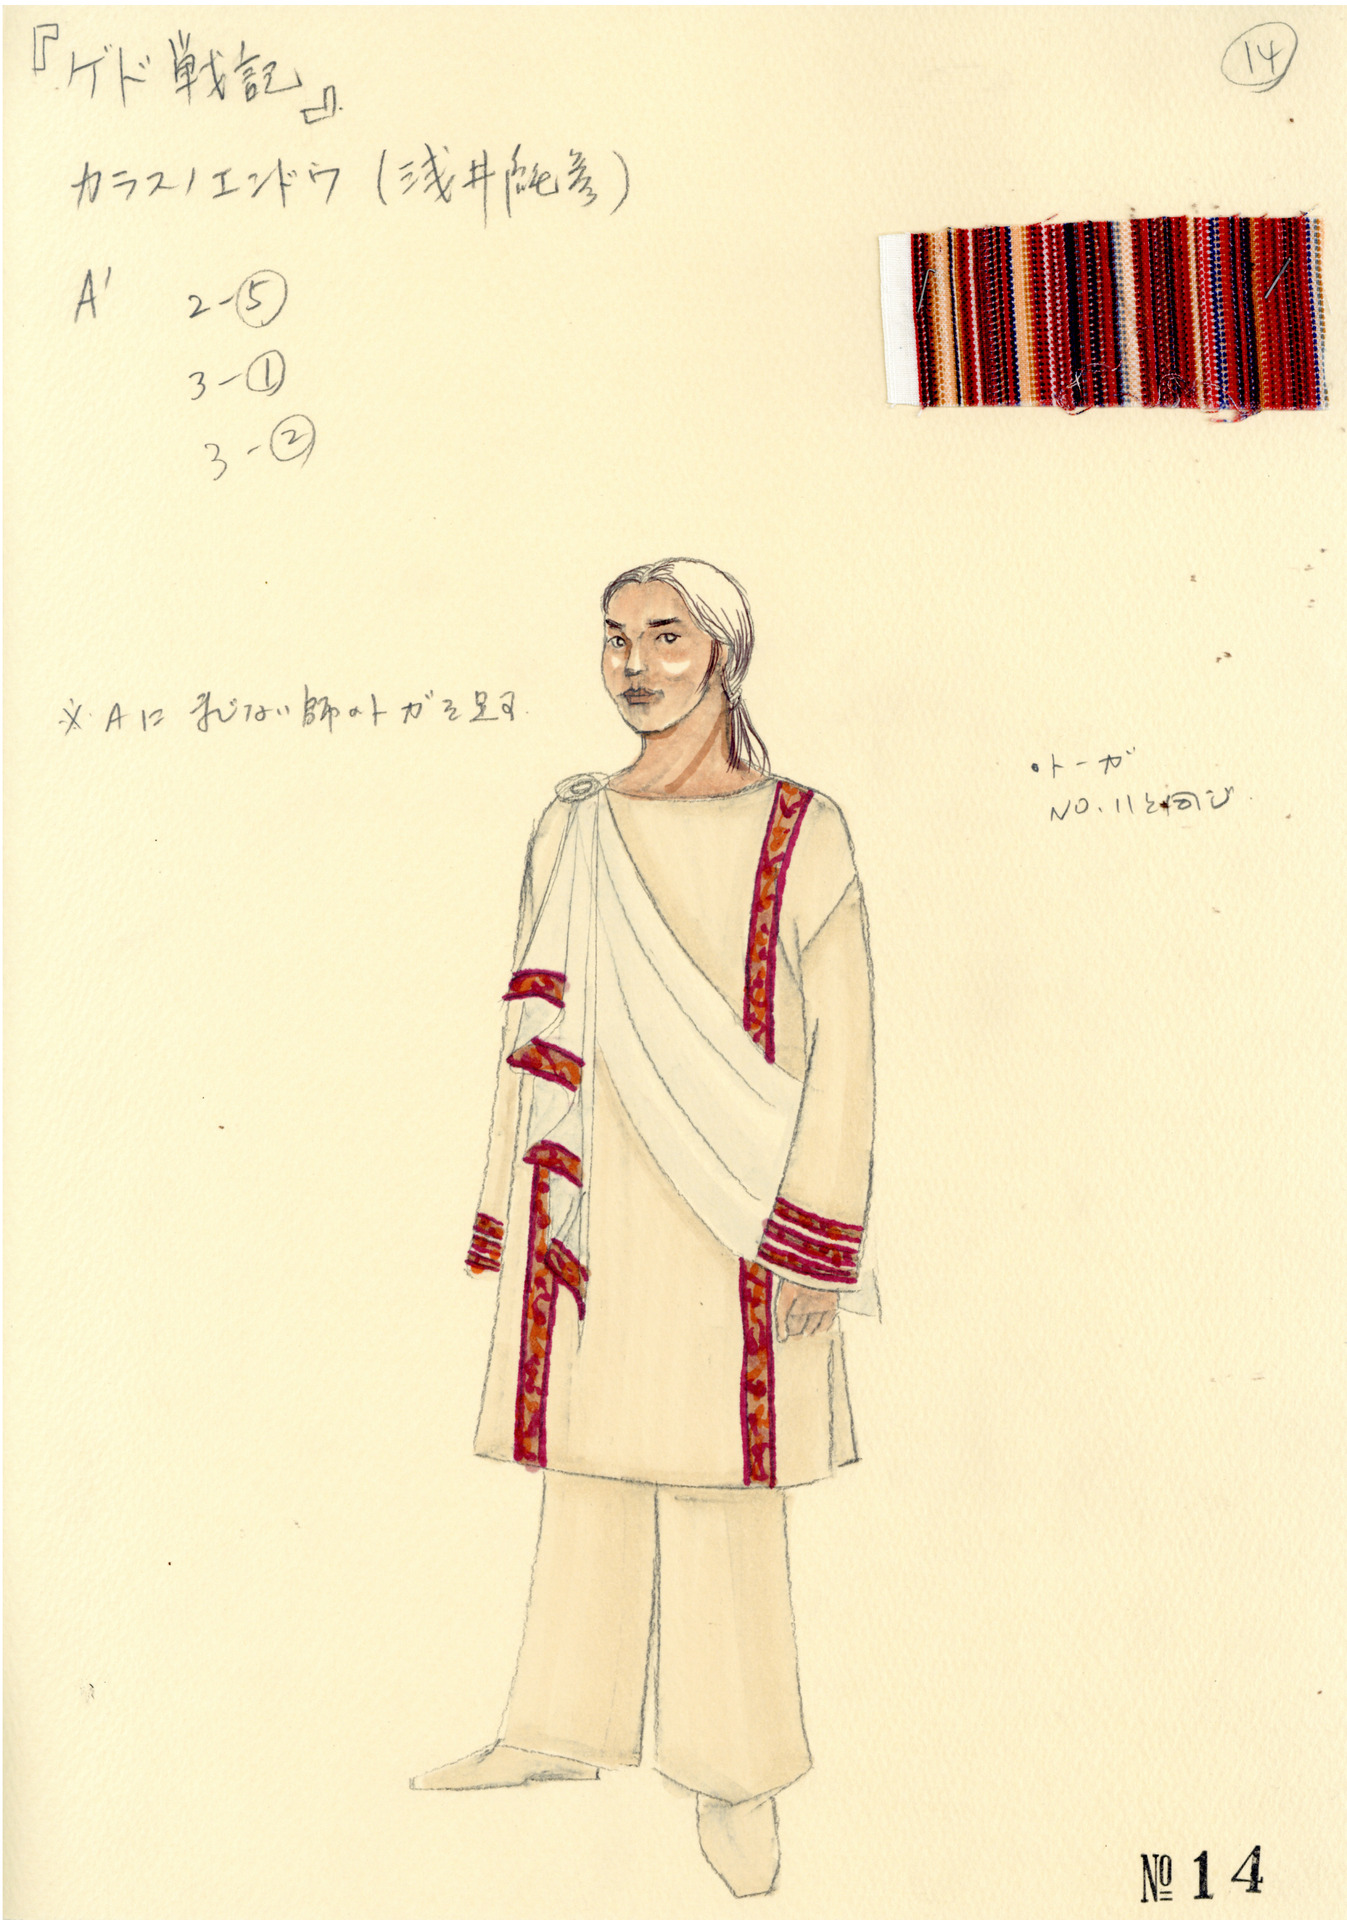 『ゲド戦記』
14
カラスノエンドウ (浅井純彦)
A' 2-⑤
3-①
3-②
※ Aに まじない師のトガを足す
・トーガ
NO.11と同じ
№ 14